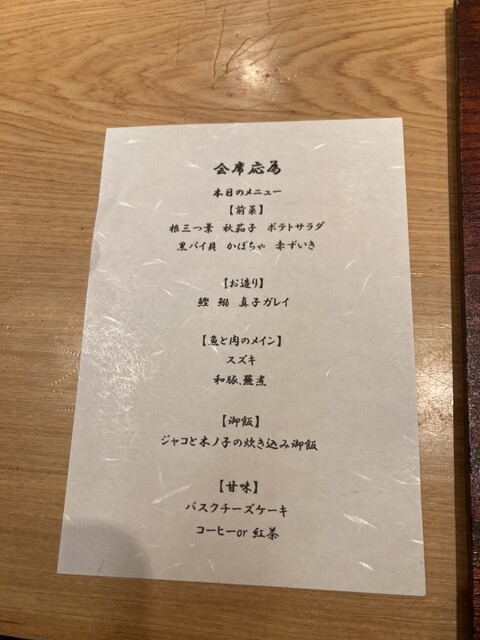 会席応為
本日のメニュー
【前菜】
根三つ葉 秋茄子 ポテトサラダ
黒バイ貝 かぼちゃ 赤ずいき
【お造り】
鰹 鰤 真子ガレイ
【魚と肉のメイン】
スズキ
和豚、蕪煮
【御飯】
ジャコと木ノ子の炊き込み御飯
【甘味】
バスクチーズケーキ
コーヒーor 紅茶